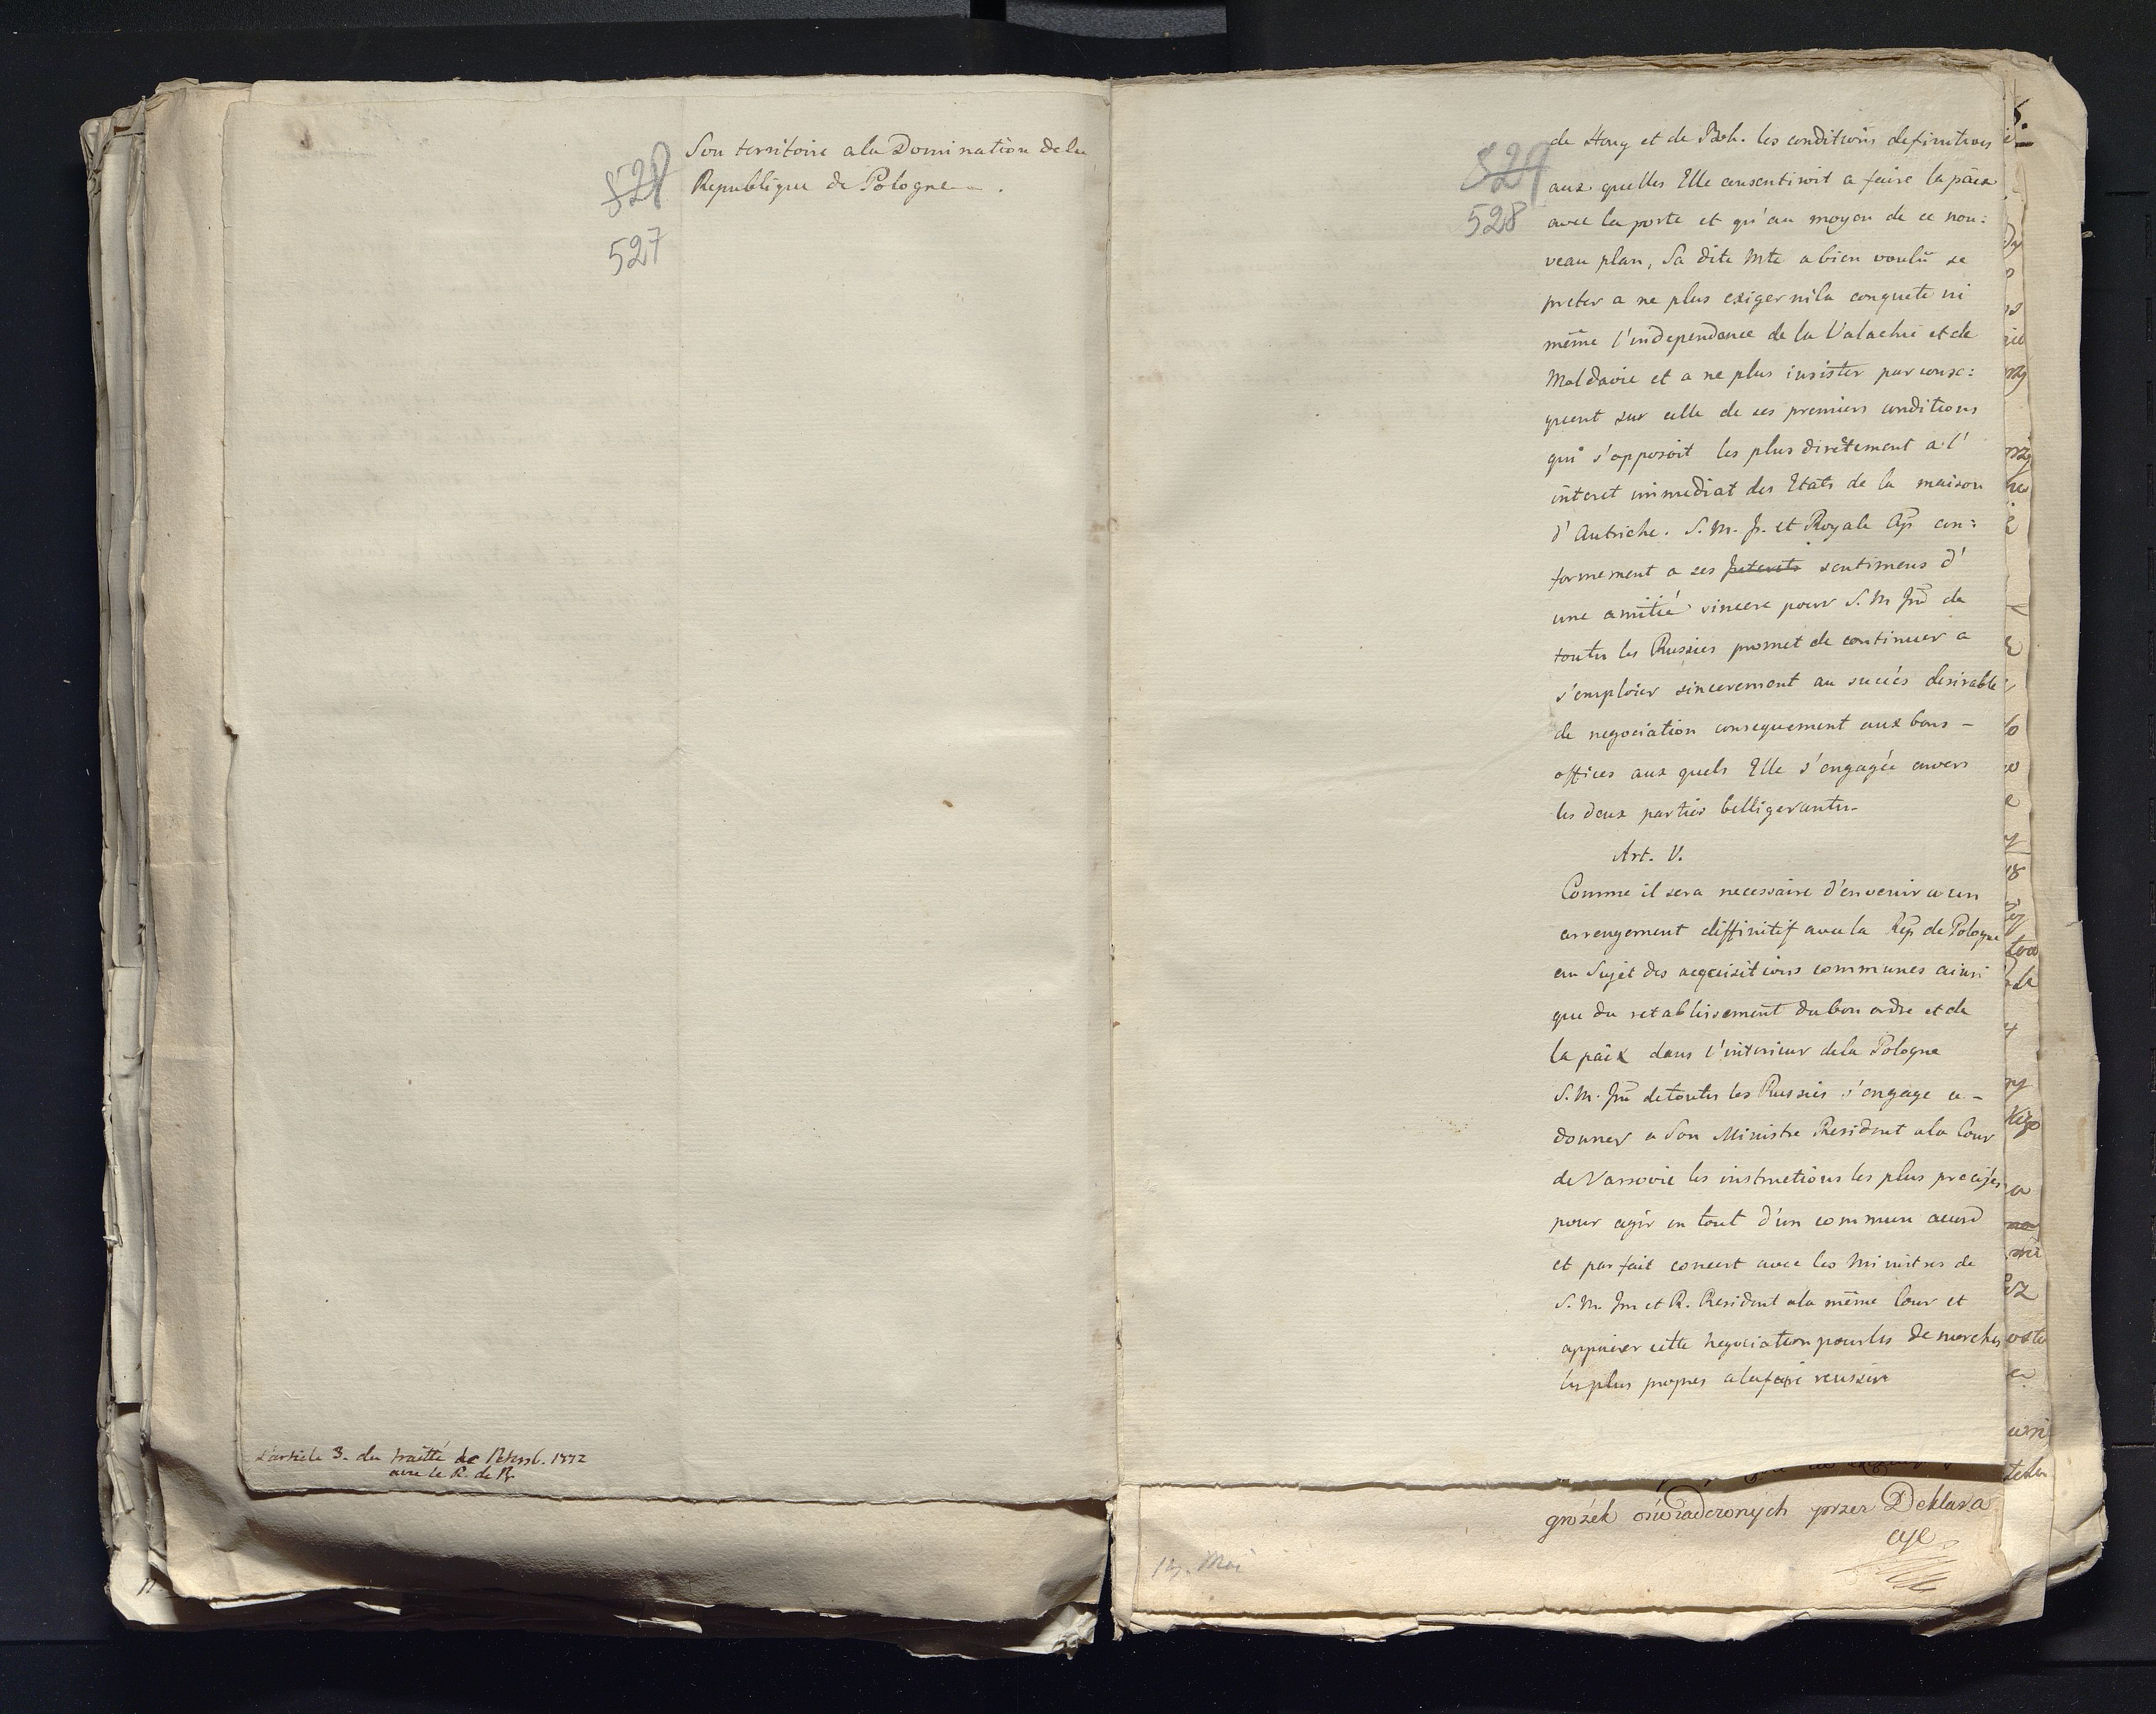 528
527
Son territoire a la Domination de la
Republique de Pologne.
L'article 3. du traitté de Petersb. 1772
avec le R. de Pr.
529
528
de Hong et de Boh. les conditions definitives
aux quelles Elle consentiroit a faire la päix
avec la porte et qu'au moyen de ce nou:
veau plan, Sa dite Mte a bien voulû se
preter a ne plus exiger ni la conquete ni
même l'independance de la Valachie et de
Moldavie et a ne plus insister par conse:
quent sur celle de ces premiers conditions
qui s'opposoit les plus diretement a l'
interet immediat des Etats de la maison
d'Autriche. S. M. J. et Royale Ap con:
formement a ses Interets sentimens d'
une amitié sincere pour S. M Im de
toutes les Russies promet de continuer a
s'emploier sincerement au succés desirable
de negociation consequement aux bons –
offices aux quels Elle s'engagée envers
les deux parties belligerantes.
Art. V.
Comme il sera necessaire d'en venir a un
arrengement diffinitif avec la Rep de Pologne
au Sujet des acquisitions communes ainsi
que du retablissement du bon ordre et de
la päix dans l'interieur de la Pologne
S. M. Im de toutes les Russies s'engage a –
donner a Son Ministre Resident a la Cour
de Varsovie les instructions les plus precises
pour agir en tout d'un commun acord
et parfait concert avec les Ministres de
S. M. Im et R. Resident a la même Cour et
appuier cette negociation pour les demarches
les plus propres a la faire reussir
gróżek oświadczonych przez Deklara
cye
19. Mai